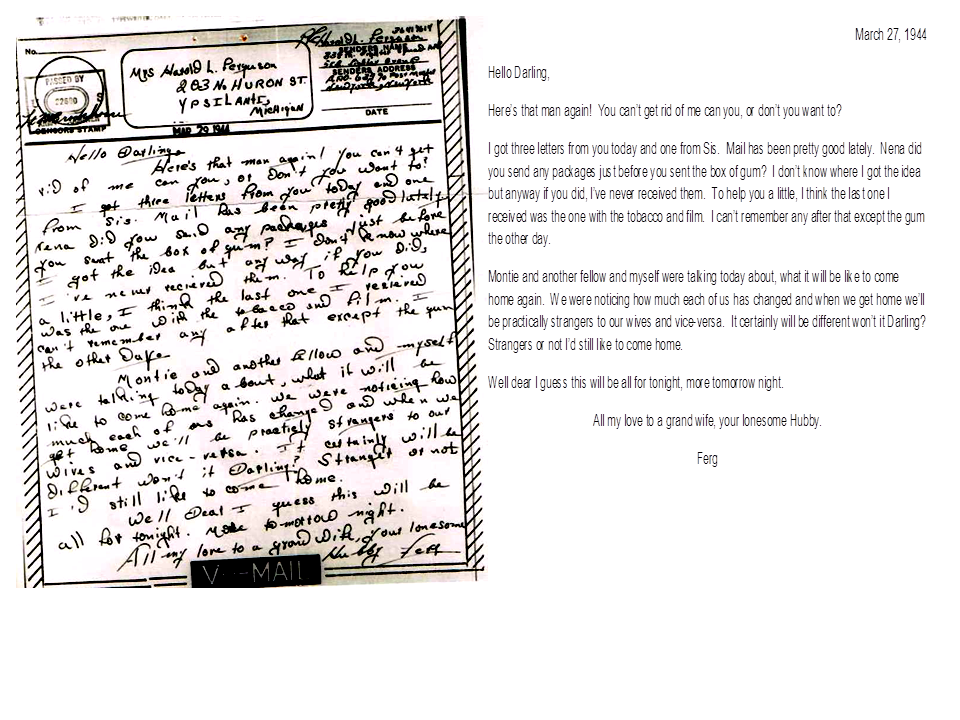 No.
PASSED BY
CENSORS STAMP
Mrs Harold L. Ferguson
803 No HURON ST.
YPSILANTI,
MICHIGAN
Harold L. Ferguson
SENDERS NAME
SENDERS ADDRESS
New York, New York
DATE
MAR 29 1944
Hello Darling
Here's that man again! You can't get
rid of me can you, or don't you want to?
I got three letters from you today and one
from Sis. Mail has been pretty good lately
Nena did you send any packages just before
you sent the box of gum? I don't know where
I got the idea but any way if you did,
I've never recieved them. To help you
a little, I think the last one I recieved
was the one with the tobacco and film. I
can't remember any after that except the gum
the other Daye
Montie and another fellow and myself
were talking today about, what it will be
like to come home again. We were noticing how
much each of us has changed and when we
get home we'll be practicly strangers to our
wives and vice-versa. It certainly will be
different won't it Darling? Stranger or not
I'd still like to come home.
Well Dear I guess this will be
all for tonight. More tomorrow night.
All my love to a grand wife, your lonesome
Hubby Ferg
V-MAIL
March 27, 1944
Hello Darling,
Here's that man again! You can't get rid of me can you, or don't you want to?
I got three letters from you today and one from Sis. Mail has been pretty good lately. Nena did
you send any packages just before you sent the box of gum? I don't know where I got the idea
but anyway if you did, I've never received them. To help you a little, I think the last one I
received was the one with the tobacco and film. I can't remember any after that except the gum
the other day.
Montie and another fellow and myself were talking today about, what it will be like to come
home again. We were noticing how much each of us has changed and when we get home we'll
be practically strangers to our wives and vice-versa. It certainly will be different won't it Darling?
Strangers or not I'd still like to come home.
Well dear I guess this will be all for tonight, more tomorrow night.
All my love to a grand wife, your lonesome Hubby.
Ferg